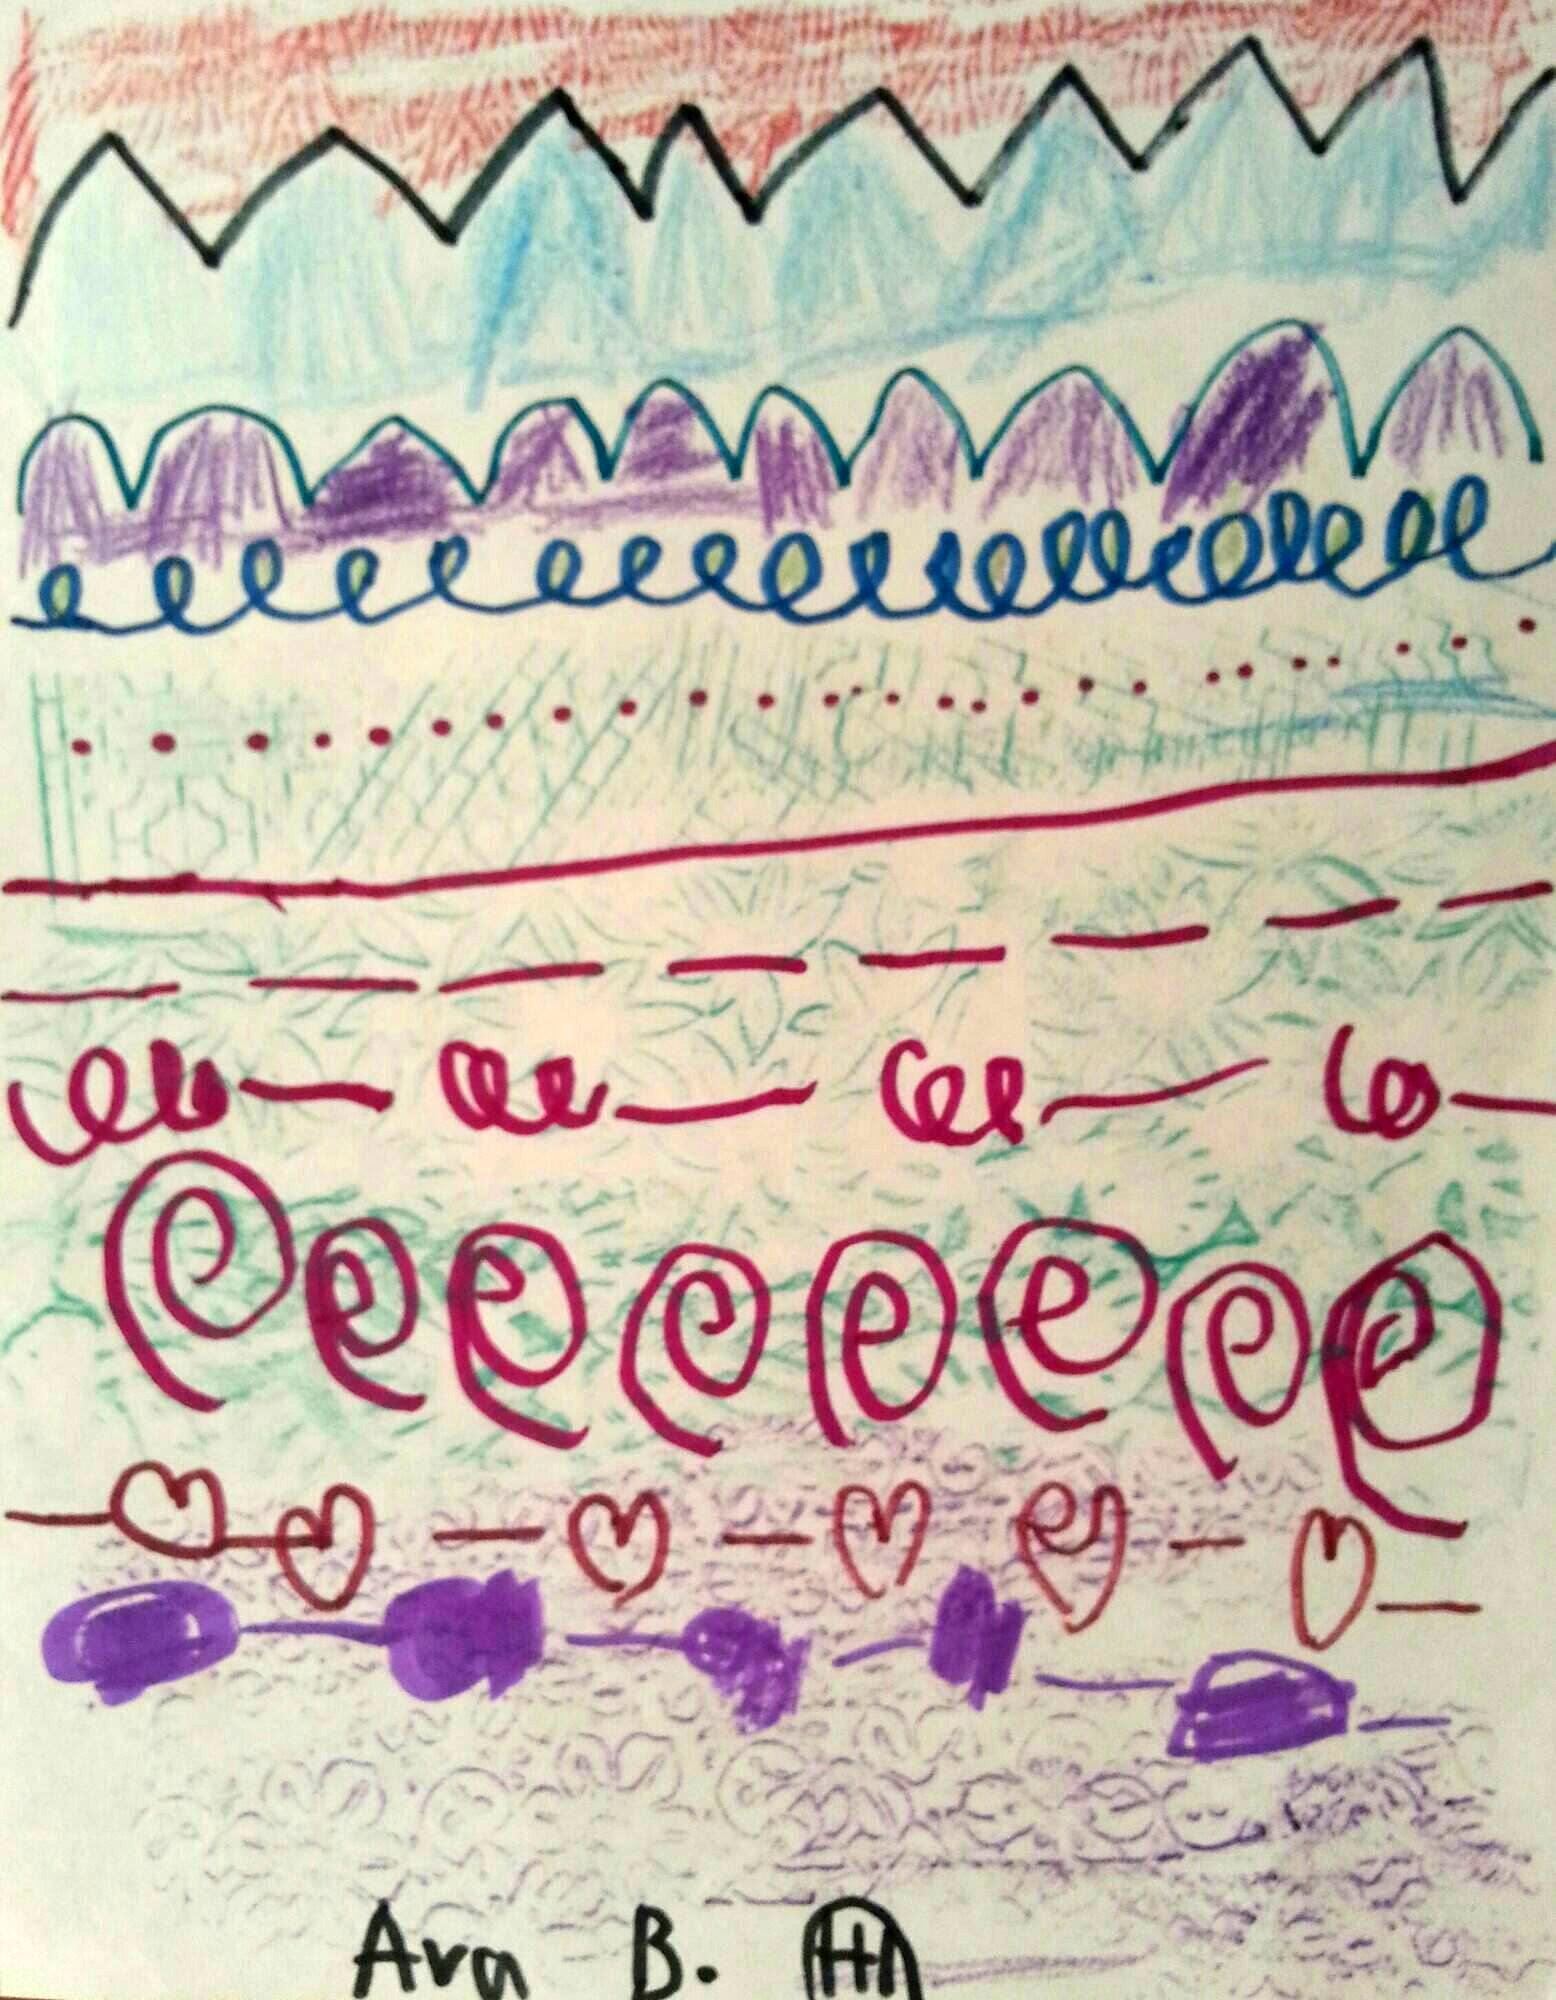 Ava B.